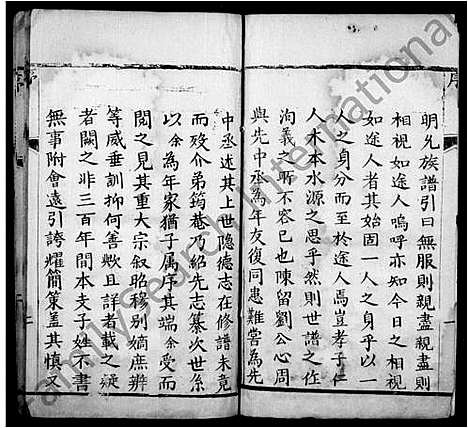 序
明允族譜引曰無服則親盡親盡則
相視如途人嗚呼亦知今日之相視
如途人者其始固一人之身乎以一
人之身分而至於途人焉豈孝子仁
人木本水源之思乎然則世譜之作
洵義之所不容已也陳留劉公心周
與先中丞為年友復同患難嘗為先
中丞述其上世隱德志在修譜未竟
而歿介弟鈞菴乃紹先志纂次世系
以余為年家猶子属序其端余受而
閱之見其重大宗叙昭穆别嫡庶辨
等威垂訓抑何善歟且詳者載之疑
者闕之非三百年間本支子姓不書
無事附會遠引誇耀簡策蓋其慎又
FamilySearch International